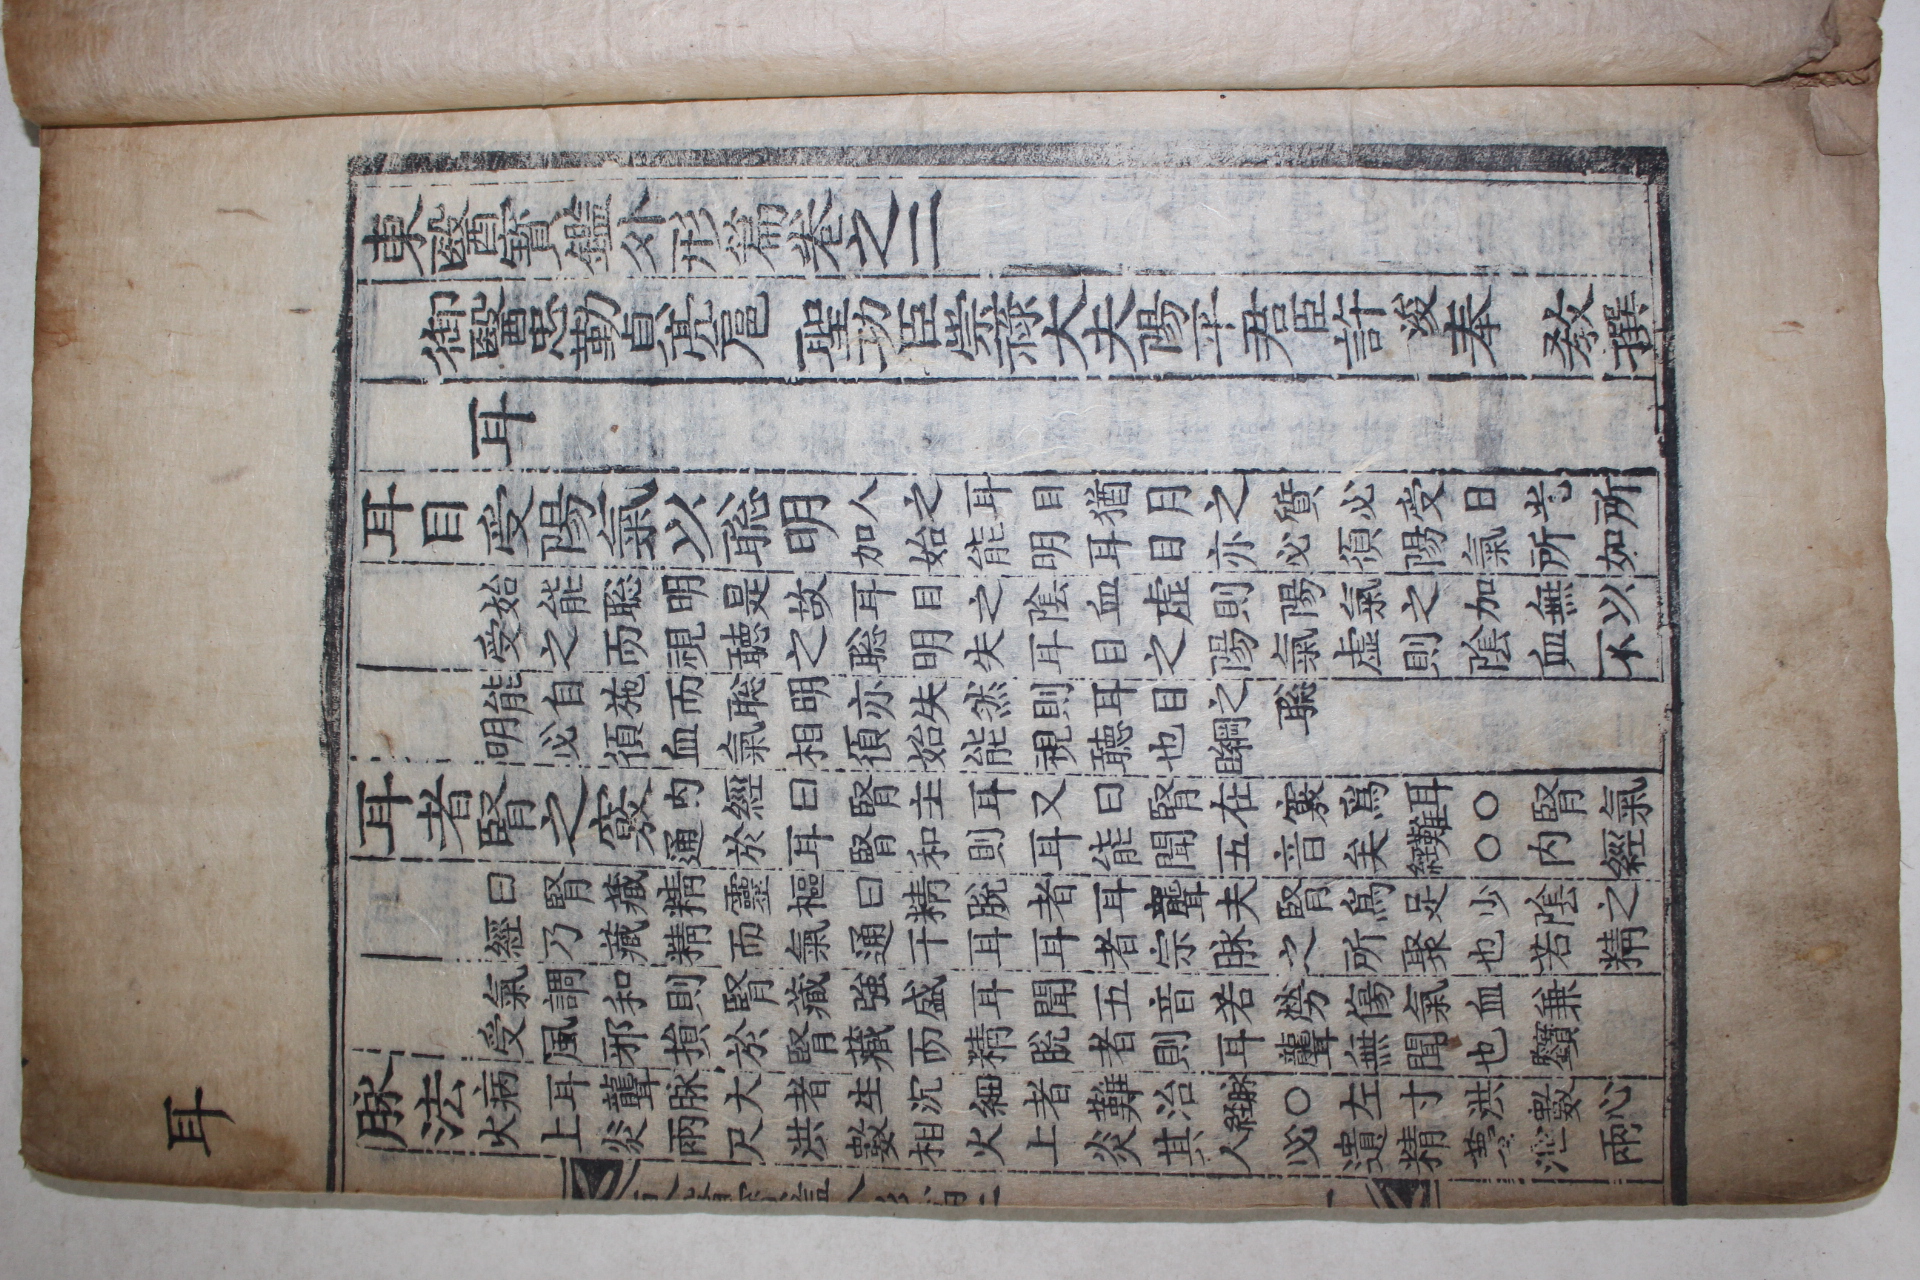 耳
東醫寶鑑外形篇卷之二
御醫忠勤貞亮扈 聖功臣崇祿大夫陽平君臣許浚奉 敎撰
耳
耳目受陽氣以聡明
人之耳目猶月之質必受日光所
加始能明耳目亦必須陽氣所如
始能聡明是故耳目之陰血虛則陽氣之加無以
受之而視聽之聡明失耳目之陽氣虛則陰血不
能自施而聡明亦失然則耳目之聡
明必須血氣相須始能視聽也綱目
耳者腎之竅
内經曰腎主耳又曰腎在竅爲耳○腎氣
通於耳腎和則耳能聞五音矣難經○内經
曰腎藏精靈樞曰精脫者耳聾夫腎爲足少陰之
經乃藏精而氣通于耳耳者宗脉之所聚也若精
氣調和則腎藏強盛耳聞五音若勞傷氣血兼
受風邪損於腎藏而精脫者則耳聾無聞也
脉法
病耳聾脉大者生沉細者難治脉經○左寸洪數心
火上炎兩尺洪數相火上炎其人必遺精夢泄兩